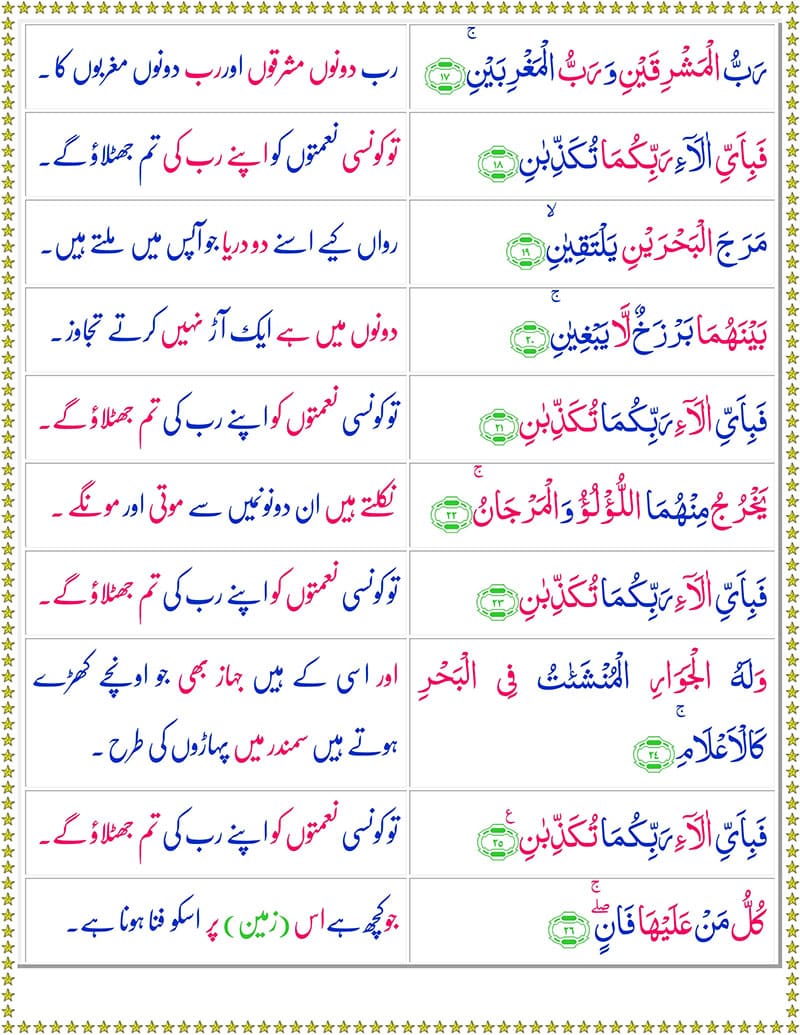 رَبُّ الْمَشْرِقَيْنِ وَ رَبُّ الْمَغْرِبَيْنِۚ ۝۱۷
رب دونوں مشرقوں اور رب دونوں مغربوں کا ۔
فَبِاَيِّ اٰلَآءِ رَبِّكُمَا تُكَذِّبٰنِ ۝۱۸
تو کونسی نعمتوں کو اپنے رب کی تم جھٹلاؤ گے ۔
مَرَجَ الْبَحْرَيْنِ يَلْتَقِيٰنِۙ ۝۱۹
رواں کیے اسنے دو دریا جو آپس میں ملتے ہیں ۔
بَيْنَهُمَا بَرْزَخٌ لَّا يَبْغِيٰنِۚ ۝۲۰
دونوں میں ہے ایک آڑ نہیں کرتے تجاوز ۔
فَبِاَيِّ اٰلَآءِ رَبِّكُمَا تُكَذِّبٰنِ ۝۲۱
تو کونسی نعمتوں کو اپنے رب کی تم جھٹلاؤ گے ۔
يَخْرُجُ مِنْهُمَا اللُّؤْلُؤُ وَ الْمَرْجَانُۚ ۝۲۲
نکلتے ہیں ان دونونمیں سے موتی اور مونگے ۔
فَبِاَيِّ اٰلَآءِ رَبِّكُمَا تُكَذِّبٰنِ ۝۲۳
تو کونسی نعمتوں کو اپنے رب کی تم جھٹلاؤ گے ۔
وَلَهُ الْجَوَارِ الْمُنْشَئٰتُ فِي الْبَحْرِ
كَالْاَعْلَامِۚ ۝۲٤
اور اسی کے ہیں جہاز بھی جو اونچے کھڑے
ہوتے ہیں سمندر میں پہاڑوں کی طرح ۔
فَبِاَيِّ اٰلَآءِ رَبِّكُمَا تُكَذِّبٰنِ ۝۲۵ ع
تو کونسی نعمتوں کو اپنے رب کی تم جھٹلاؤ گے ۔
كُلُّ مَنْ عَلَيْهَا فَانٍۚۖ ۝۲۶
جو کچھ ہے اس (زمین) پر اسکو فنا ہونا ہے ۔